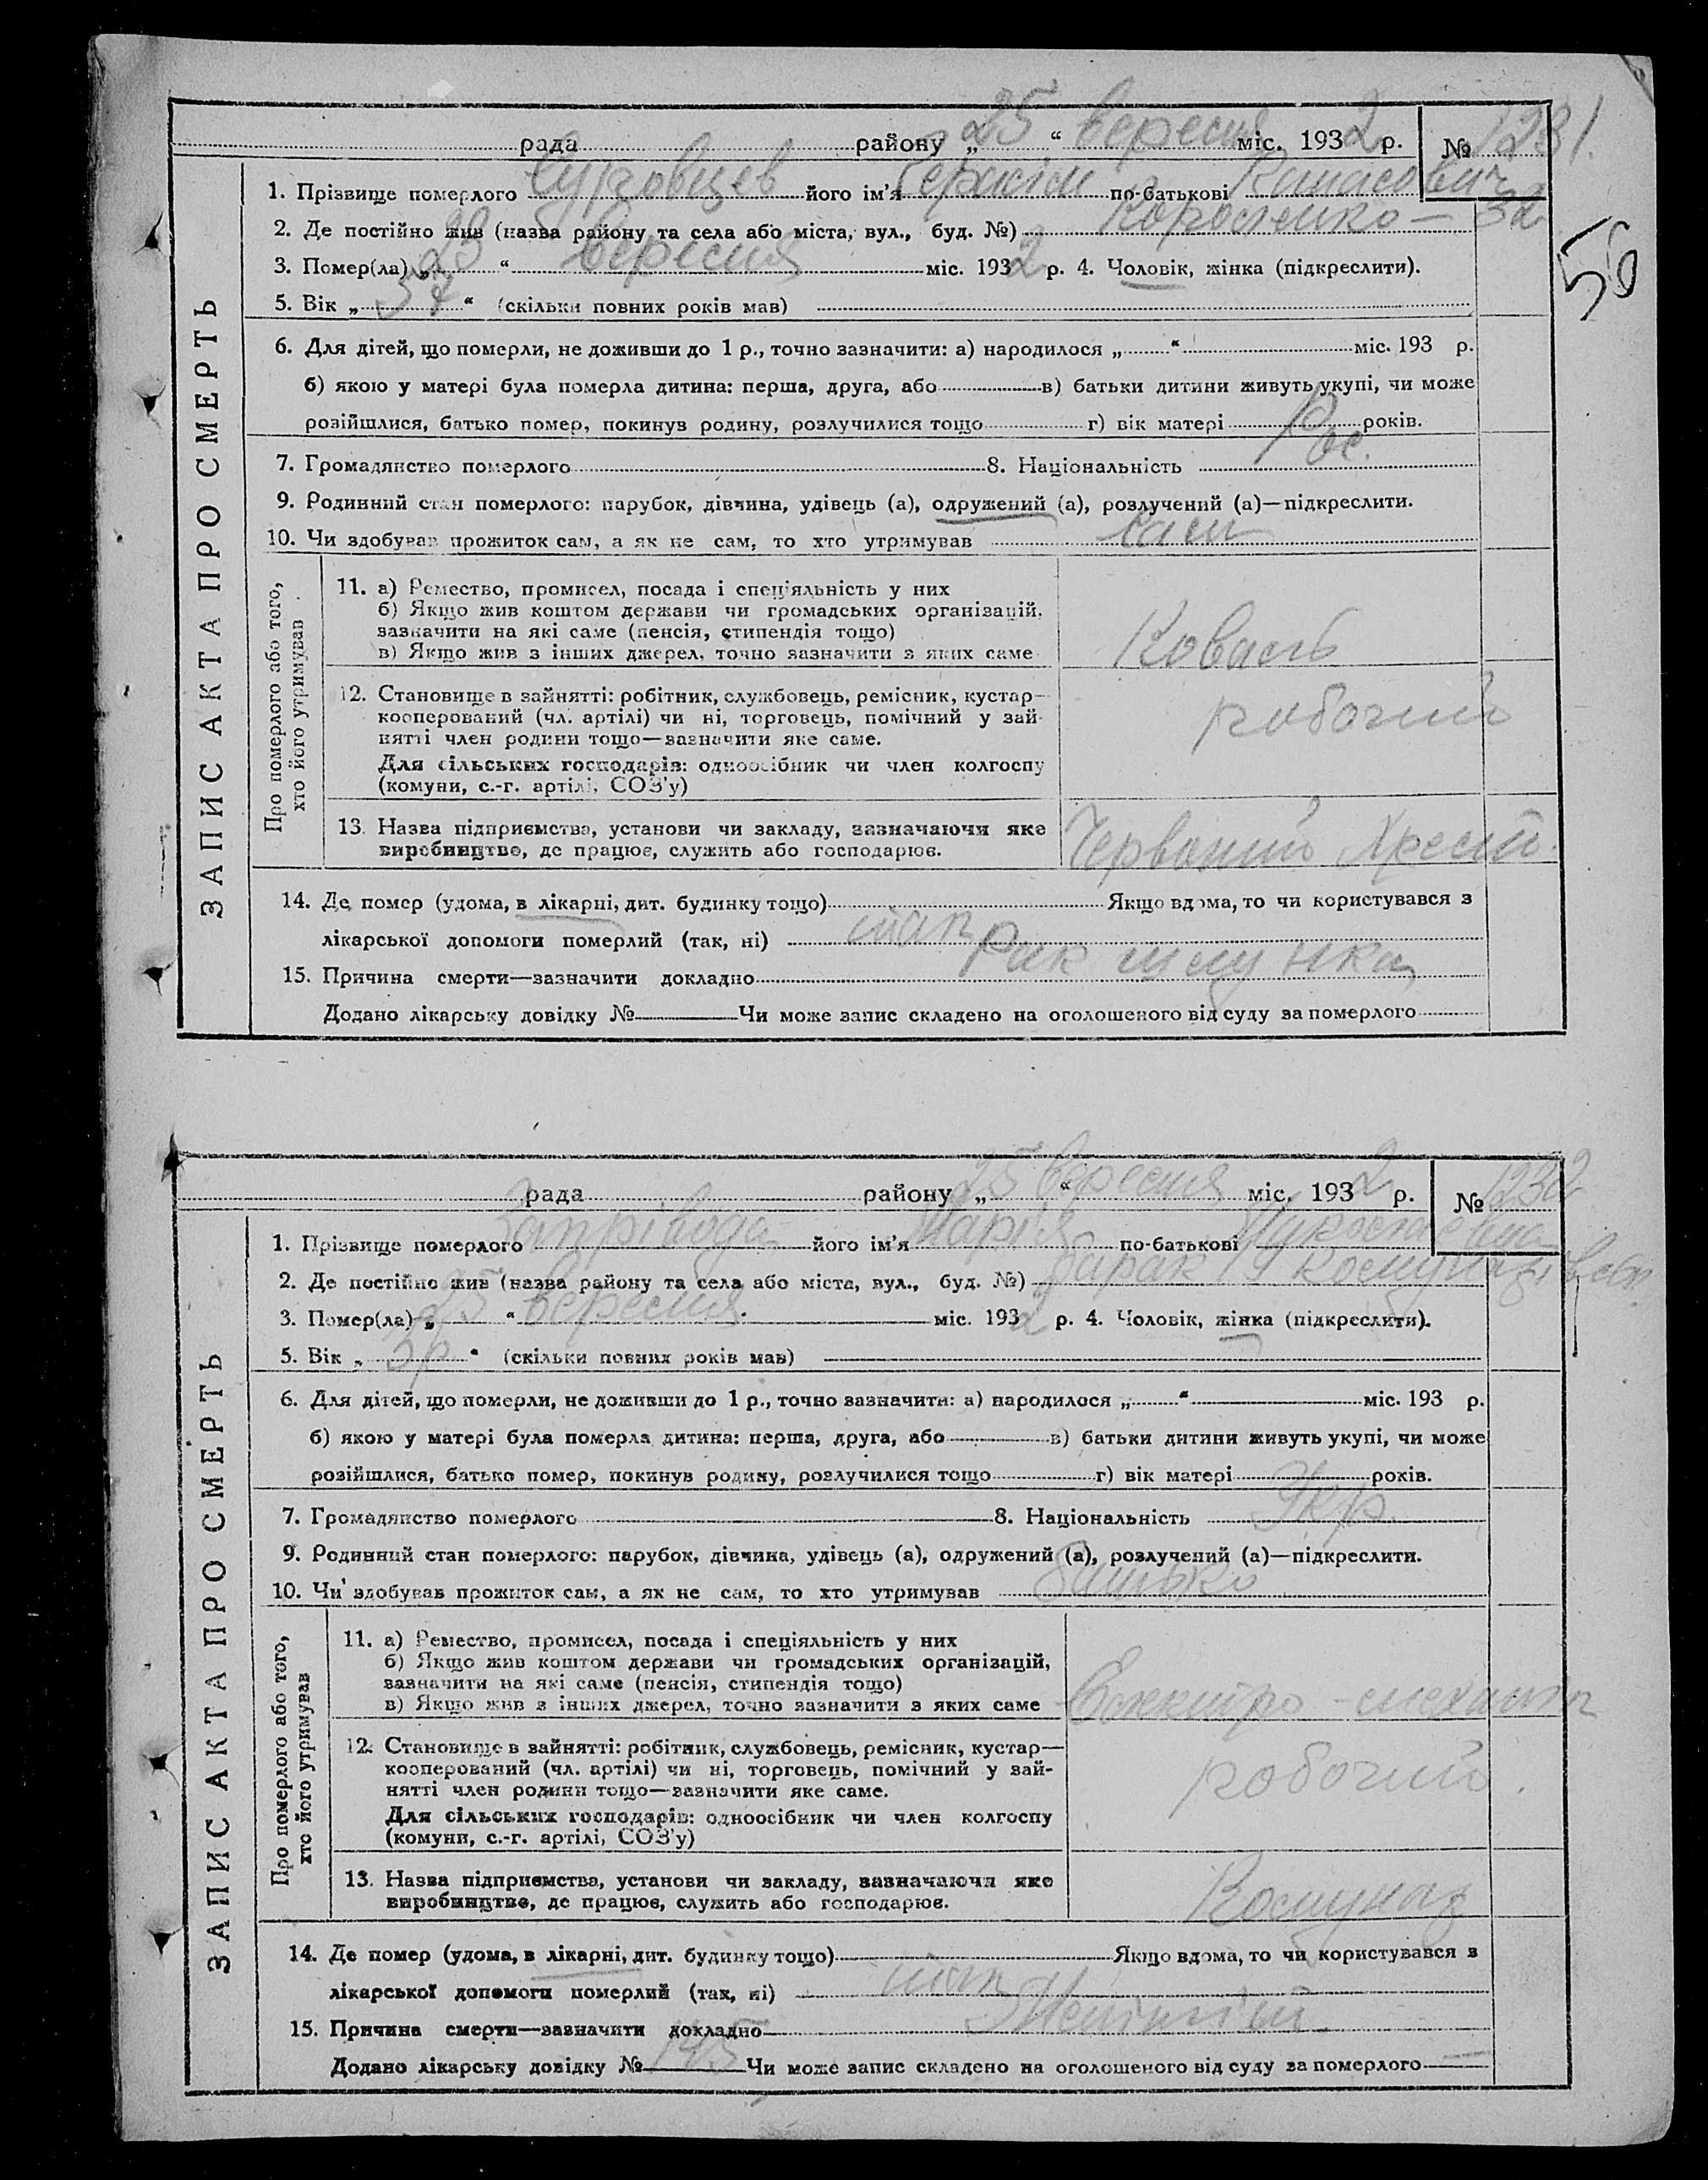 рада района „25“ вересня міс. 1932 р. № 1231.
56
1. Прізвище померлого його ім'я Герасім по-батькові
2. Де постійно жив (назва району та села або міста, вул., буд. №) Короленко – 32
3. Помер(ла) „23“ вересня міс. 1932 р. 4. Чоловік, жінка (підкреслити).
5. Вік „57“ (скільки повних років мав)
6. Для дітей, що померли, не доживши до 1 р., точно зазначити: а) народилося „ “ міс. 193 р.
б) якою у матері була померла дитина: перша, друга, або в) батьки дитини живуть укупі, чи може
розійшлися, батько помер, покинув родину, розлучилися тощо г) вік матері років.
7. Громадянство померлого 8. Національність Рос.
9. Родинний стан померлого: парубок, дівчина, удівець (а), одружений (а), розлучений (а)—підкреслити.
10. Чи здобував прожиток сам, а як не сам, то хто утримував сам
ЗАПИС АКТА ПРО СМЕРТЬ
Про померлого або того,
хто його утримував
11. а) Ремество, промисел, посада і спеціяльність у них
б) Якщо жив коштом держави чи громадських організацій,
зазначити на які саме (пенсія, стипендія тощо)
в) Якщо жив з інших джерел, точно зазначити з яких саме
Коваль
12. Становище в зайнятті: робітник, службовець, ремісник, кустар—
кооперований (чл. артілі) чи ні, торговець, помічний у зай-
нятті член родини тощо—зазначити яке саме.
Для сільських господарів: одноосібник чи член колгоспу
(комуни, с.-г. артілі, СОЗ'у)
робочий
13. Назва підприємства, установи чи закладу, зазначаючи яке
виробництво, де працює, служить або господарює.
Червоний Хрест.
14. Де помер (удома, в лікарні, дит. будинку тощо) Якщо вдома, то чи користувався з
лікарської допомоги померлий (так, ні) так
15. Причина смерти—зазначити докладно Рак шлунка
Додано лікарську довідку № Чи може запис складено на оголошеного від суду за померлого
рада району „25“ вересня міс. 1932 р. № 1232
1. Прізвище померлого Запрівода його ім'я Марія по-батькові
2. Де постійно жив (назва району та села або міста, вул., буд. №) барак 19
3. Помер(ла) „25“ вересня. міс. 1932 р. 4. Чоловік, жінка (підкреслити).
5. Вік „3р“ (скільки повних років мав)
6. Для дітей, що померли, не доживши до 1 р., точно зазначити: а) народилося „ “ міс. 193 р.
б) якою у матері була померла дитина: перша, друга, або в) батьки дитини живуть укупі, чи може
розійшлися, батько помер, покинув родину, розлучилися тощо г) вік матері років.
7. Громадянство померлого 8. Національність Укр.
9. Родинний стан померлого: парубок, дівчина, удівець (а), одружений (а), розлучений (а)—підкреслити.
10. Чи здобував прожиток сам, а як не сам, то хто утримував батько
ЗАПИС АКТА ПРО СМЕРТЬ
Про померлого або того,
хто його утримував
11. а) Ремество, промисел, посада і спеціяльність у них
б) Якщо жив коштом держави чи громадських організацій,
зазначити на які саме (пенсія, стипендія тощо)
в) Якщо жив з інших джерел, точно зазначити з яких саме
12. Становище в зайнятті: робітник, службовець, ремісник, кустар—
кооперований (чл. артілі) чи ні, торговець, помічний у зай-
нятті член родини тощо—зазначити яке саме.
Для сільських господарів: одноосібник чи член колгоспу
(комуни, с.-г. артілі, СОЗ'у)
робочий.
13. Назва підприємства, установи чи закладу, зазначаючи яке
виробництво, де працює, служить або господарює.
Комунар
14. Де помер (удома, в лікарні, дит. будинку тощо) Якщо вдома, то чи користувався з
лікарської допомоги померлий (так, ні) так
15. Причина смерти—зазначити докладно Менінгіт.
Додано лікарську довідку № 145 Чи може запис складено на оголошеного від суду за померлого